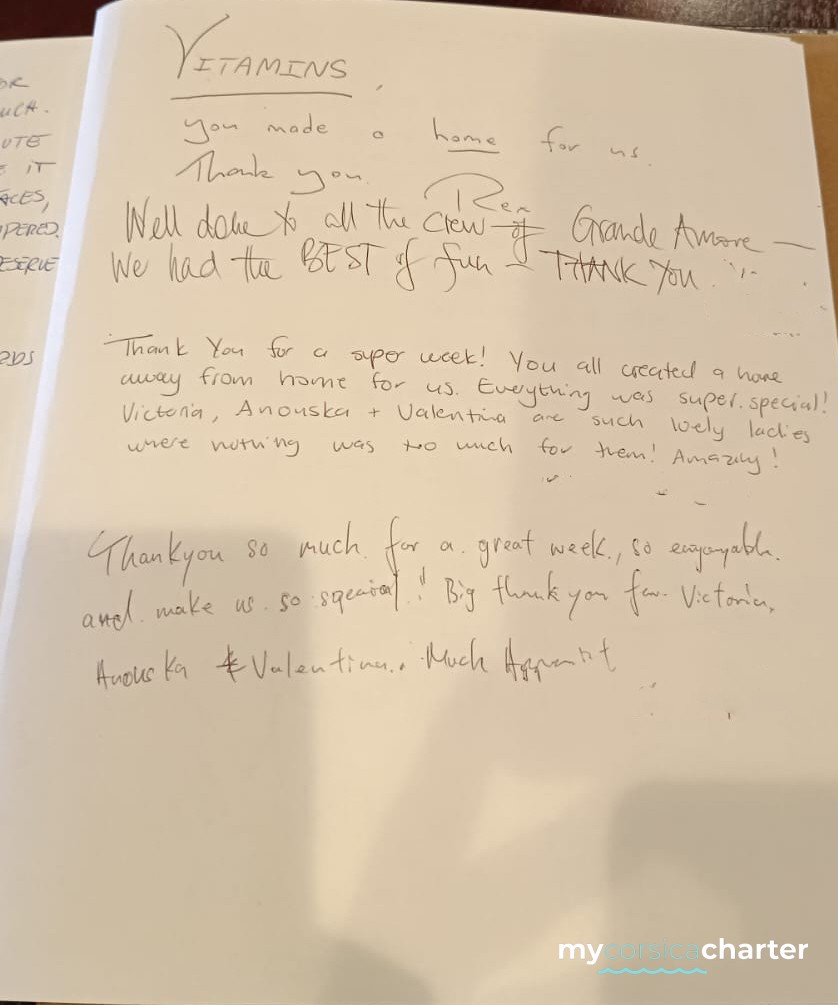 OR
UCA.
UTE
E IT
ACES,
PERED.
ESERVE
RDS
VITAMINS,
you made a home for us.
Thank you. Ren
Well done to all the crew of Grande Amore —
We had the BEST of fun – THANK YOU
Thank You for a super week! You all created a home
away from home for us. Everything was super.special!
Victoria, Anouska + Valentina are such lovely ladies
where nothing was too much for them! Amazing!
Thankyou so much. for a. great week., so
and. make us. so ! Big thank you for. Victoria,
Anouska & Valentina.. Much
mycorsicacharter